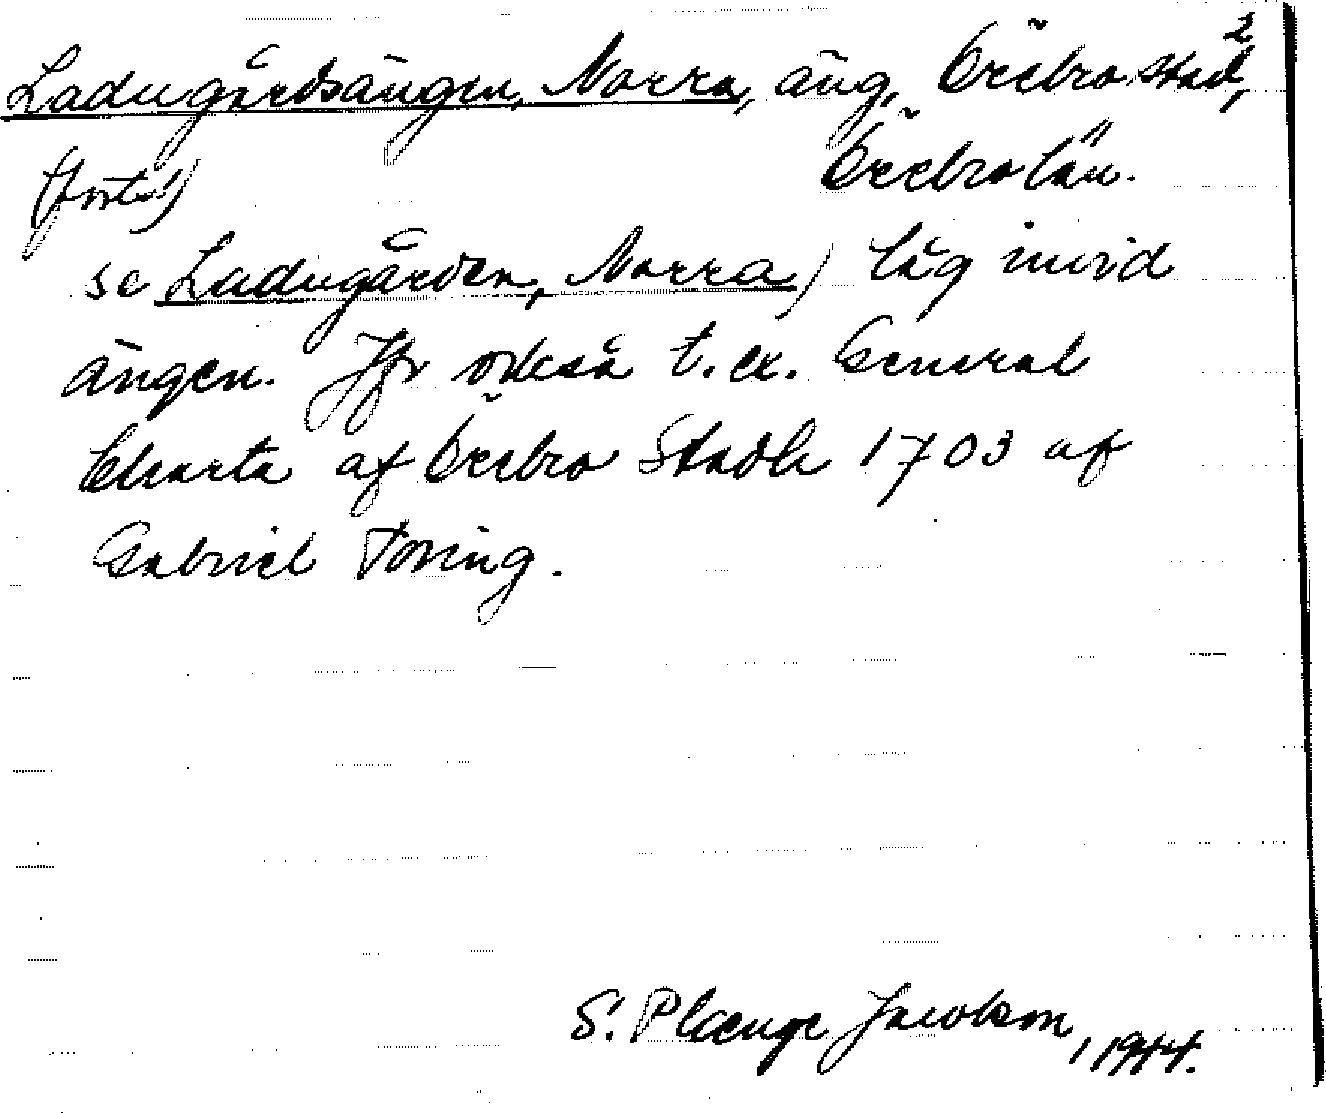 2
Ladugårdsängen, Norra, äng, Örebro stad,
(forts.) Örebro län.
se Ladugården, Norra) låg invid
ängen. Jfr också t.ex. General
Charta af Örebro Stadh 1703 af
Gabriel Toring.
S. Plaenge Jacobson, 1944.